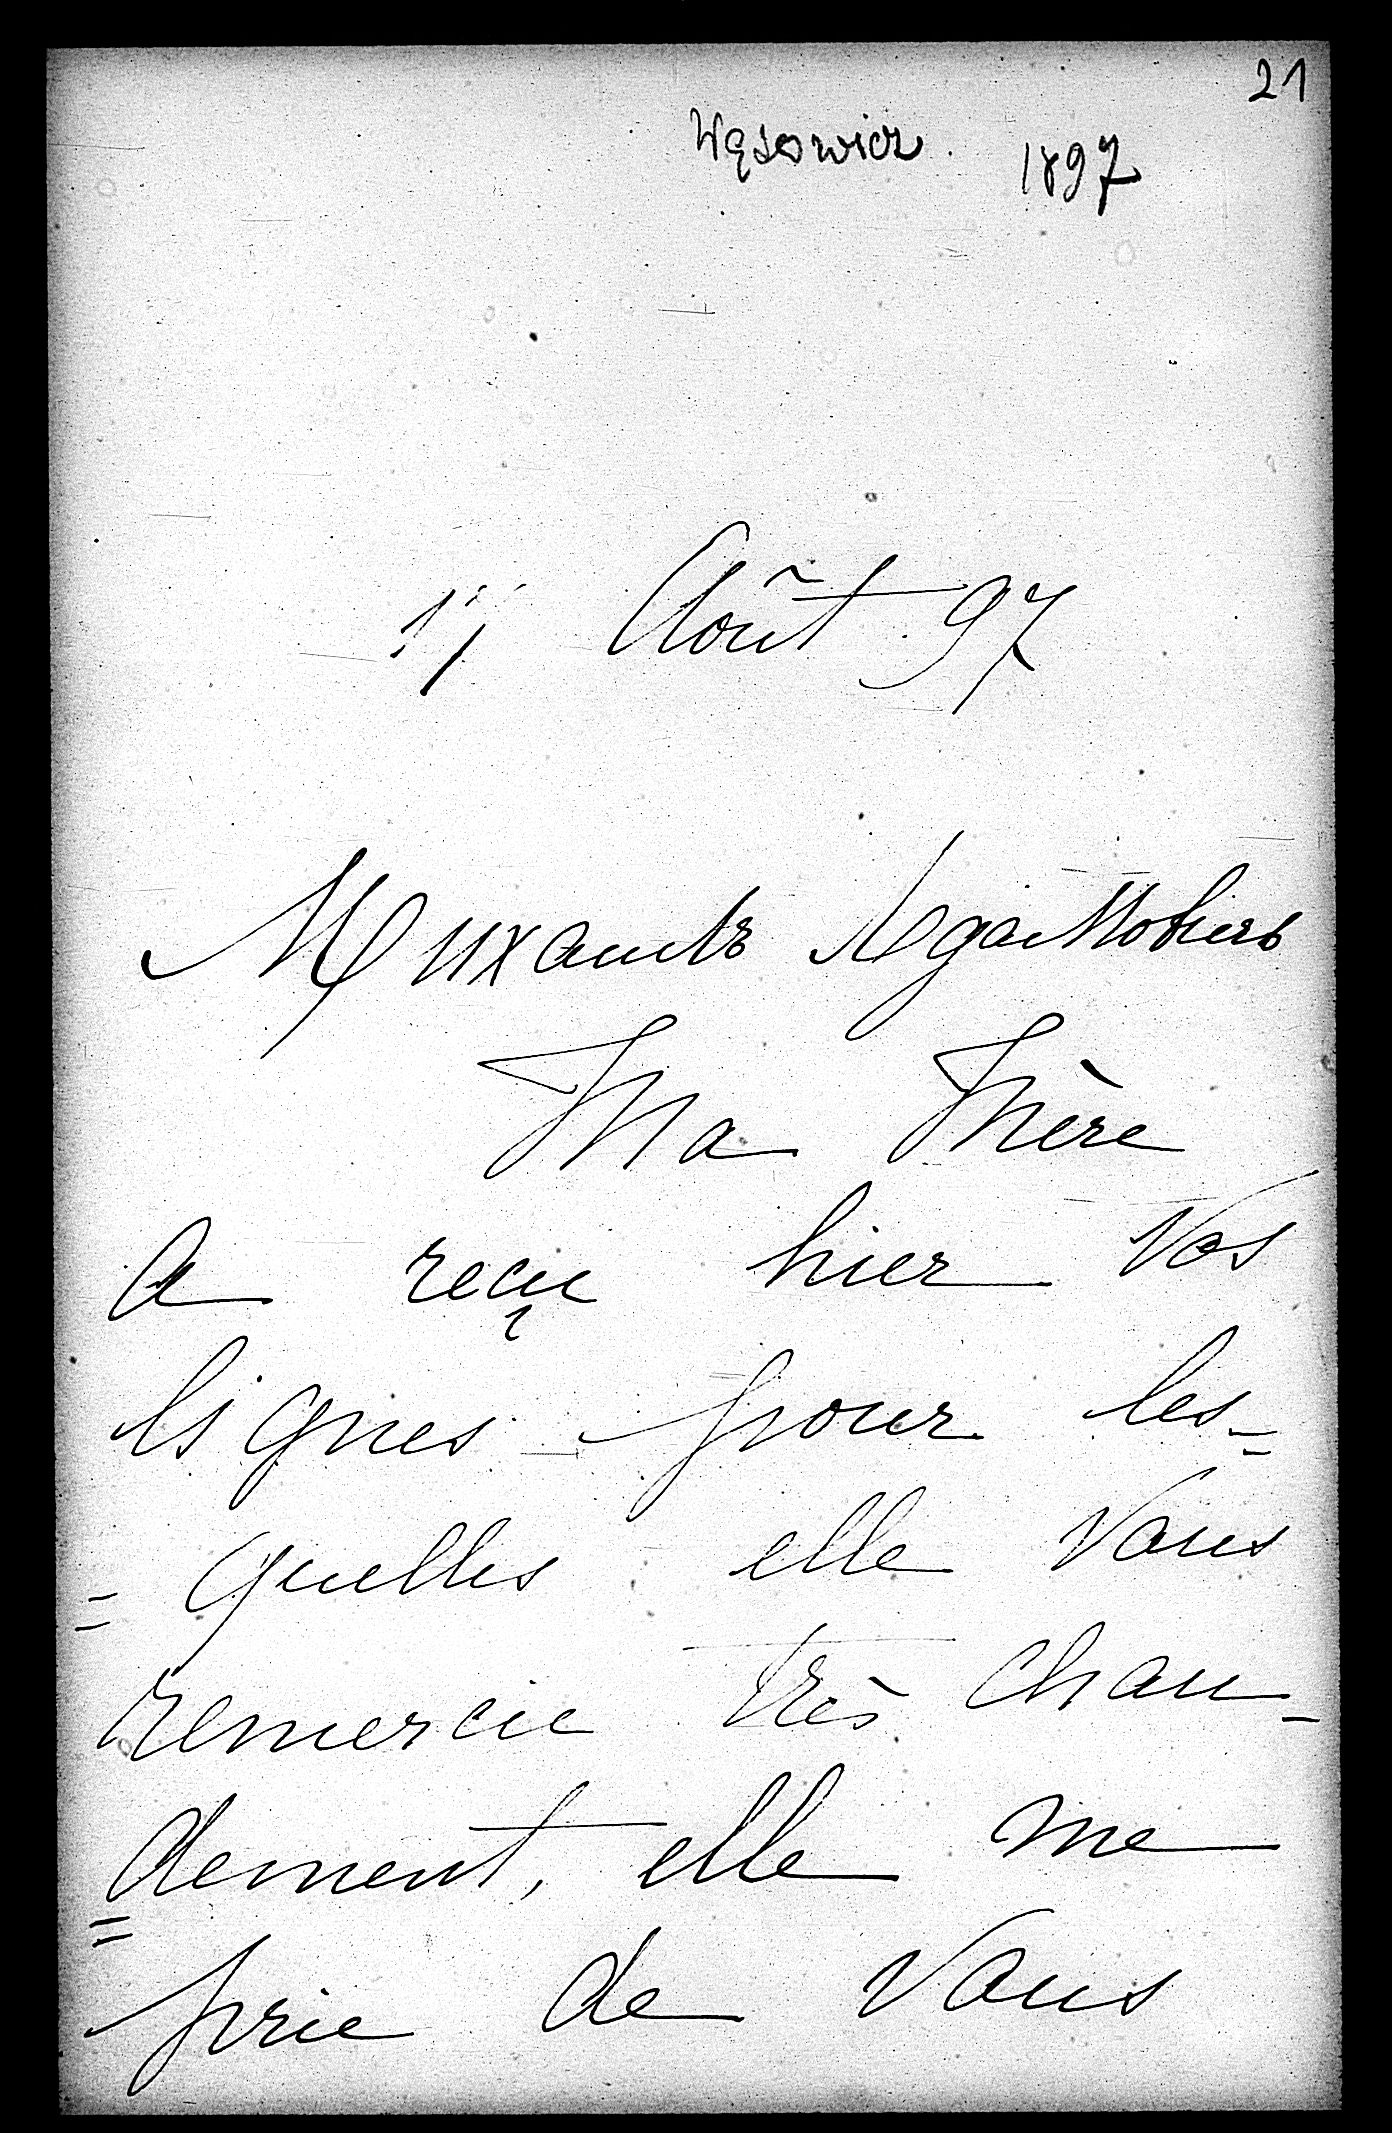 21
Wąsowicz 1897
Août 97
Михаилъ Адамовичъ
Ma Mère
a reçu hier Vos
lignes pour les=
=quelles elle Vous
remercie très chau=
=dement, elle me
prie de Vous